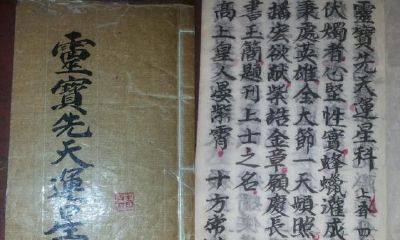 靈寶先天運星
靈寶先天運星科
伏燭者心堅性實蜂蠟灌成
秉處英雄全大節一天傾照
播宏欲献紫誥金章願慶長
書玉簡題刊上士之名
高上皇人晏紫霄 十方